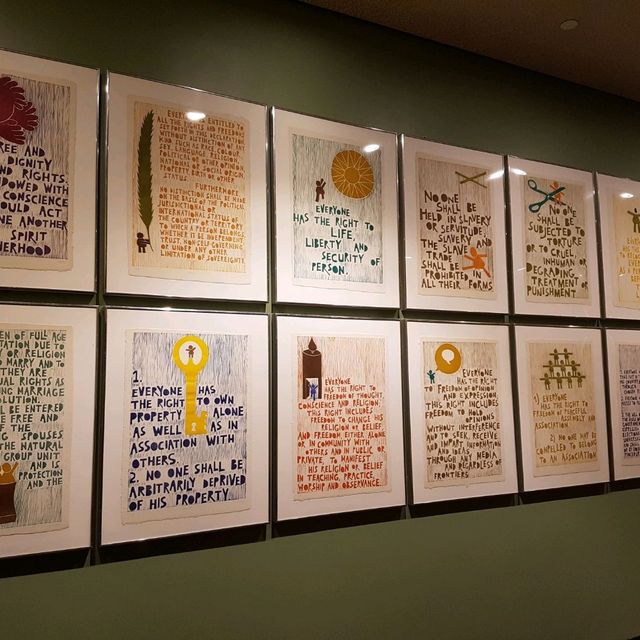 REE AND
DIGNITY
AND RIGHTS.
DOWED WITH
CONSCIENCE
OULD ACT
NE ANOTHER
SPIRIT
HERHOOD
EVERYONE IS ENTITLED TO
ALL THE RIGHTS AND FREEDOMS
SET FORTH IN THIS DECLARATION,
WITHOUT DISTINCTION OF ANY
KIND, SUCH AS RACE, COLOUR,
SEX, LANGUAGE, RELIGION,
POLITICAL OR OTHER OPINION,
NATIONAL OR SOCIAL ORIGIN,
PROPERTY, BIRTH OR OTHER
STATUS.
FURTHERMORE,
NO DISTINCTION SHALL BE MADE
ON THE BASIS OF THE POLITICAL,
JURISDICTIONAL OR
INTERNATIONAL STATUS OF
THE COUNTRY OR TERRITORY
TO WHICH A PERSON BELONGS,
WHETHER IT BE INDEPENDENT,
TRUST, NON-SELF-GOVERNING
OR UNDER ANY OTHER
LIMITATION OF SOVEREIGNTY.
EVERYONE
HAS THE RIGHT TO
LIFE,
LIBERTY AND
SECURITY OF
PERSON.
NO ONE
SHALL BE
HELD IN SLAVERY
OR SERVITUDE,
SLAVERY AND
THE SLAVE
TRADE
SHALL BE
PROHIBITED IN
ALL THEIR FORMS
NO ONE
SHALL BE
SUBJECTED TO
TORTURE
OR TO CRUEL
INHUMAN OR
DEGRADING
TREATMENT OR
PUNISHMENT
EN OF FULL AGE
TATION DUE TO
Y OR RELIGION
O MARRY AND TO
THEY ARE
UAL RIGHTS AS
ING MARRIAGE
OLUTION.
LL BE ENTERED
E FREE AND
OF THE
NG SPOUSES
THE NATURAL
GROUP UNIT
AND IS
PROTECTION
AND THE
1.
EVERYONE HAS
THE RIGHT TO OWN
PROPERTY ALONE
AS WELL AS IN
ASSOCIATION WITH
OTHERS.
2. NO ONE SHALL BE
ARBITRARILY DEPRIVED
OF HIS PROPERTY.
EVERYONE
HAS THE RIGHT TO
FREEDOM OF THOUGHT,
CONSCIENCE AND RELIGION.
THIS RIGHT INCLUDES
FREEDOM TO CHANGE HIS
RELIGION OR BELIEF,
AND FREEDOM, EITHER ALONE
OR IN COMMUNITY WITH
OTHERS AND IN PUBLIC OR
PRIVATE, TO MANIFEST
HIS RELIGION OR BELIEF
IN TEACHING, PRACTICE,
WORSHIP AND OBSERVANCE.
EVERYONE
HAS THE RIGHT TO
FREEDOM OF OPINION
AND EXPRESSION,
THIS RIGHT INCLUDES
FREEDOM TO HOLD
OPINIONS
WITHOUT INTERFERENCE
AND TO SEEK, RECEIVE
AND IMPART INFORMATION
AND IDEAS
THROUGH ANY MEDIA
AND REGARDLESS OF
FRONTIERS.
1) EVERYONE
HAS THE RIGHT TO
FREEDOM OF PEACEFUL
ASSEMBLY AND
ASSOCIATION
2) NO ONE MAY BE
COMPELLED TO BELONG
TO AN ASSOCIATION